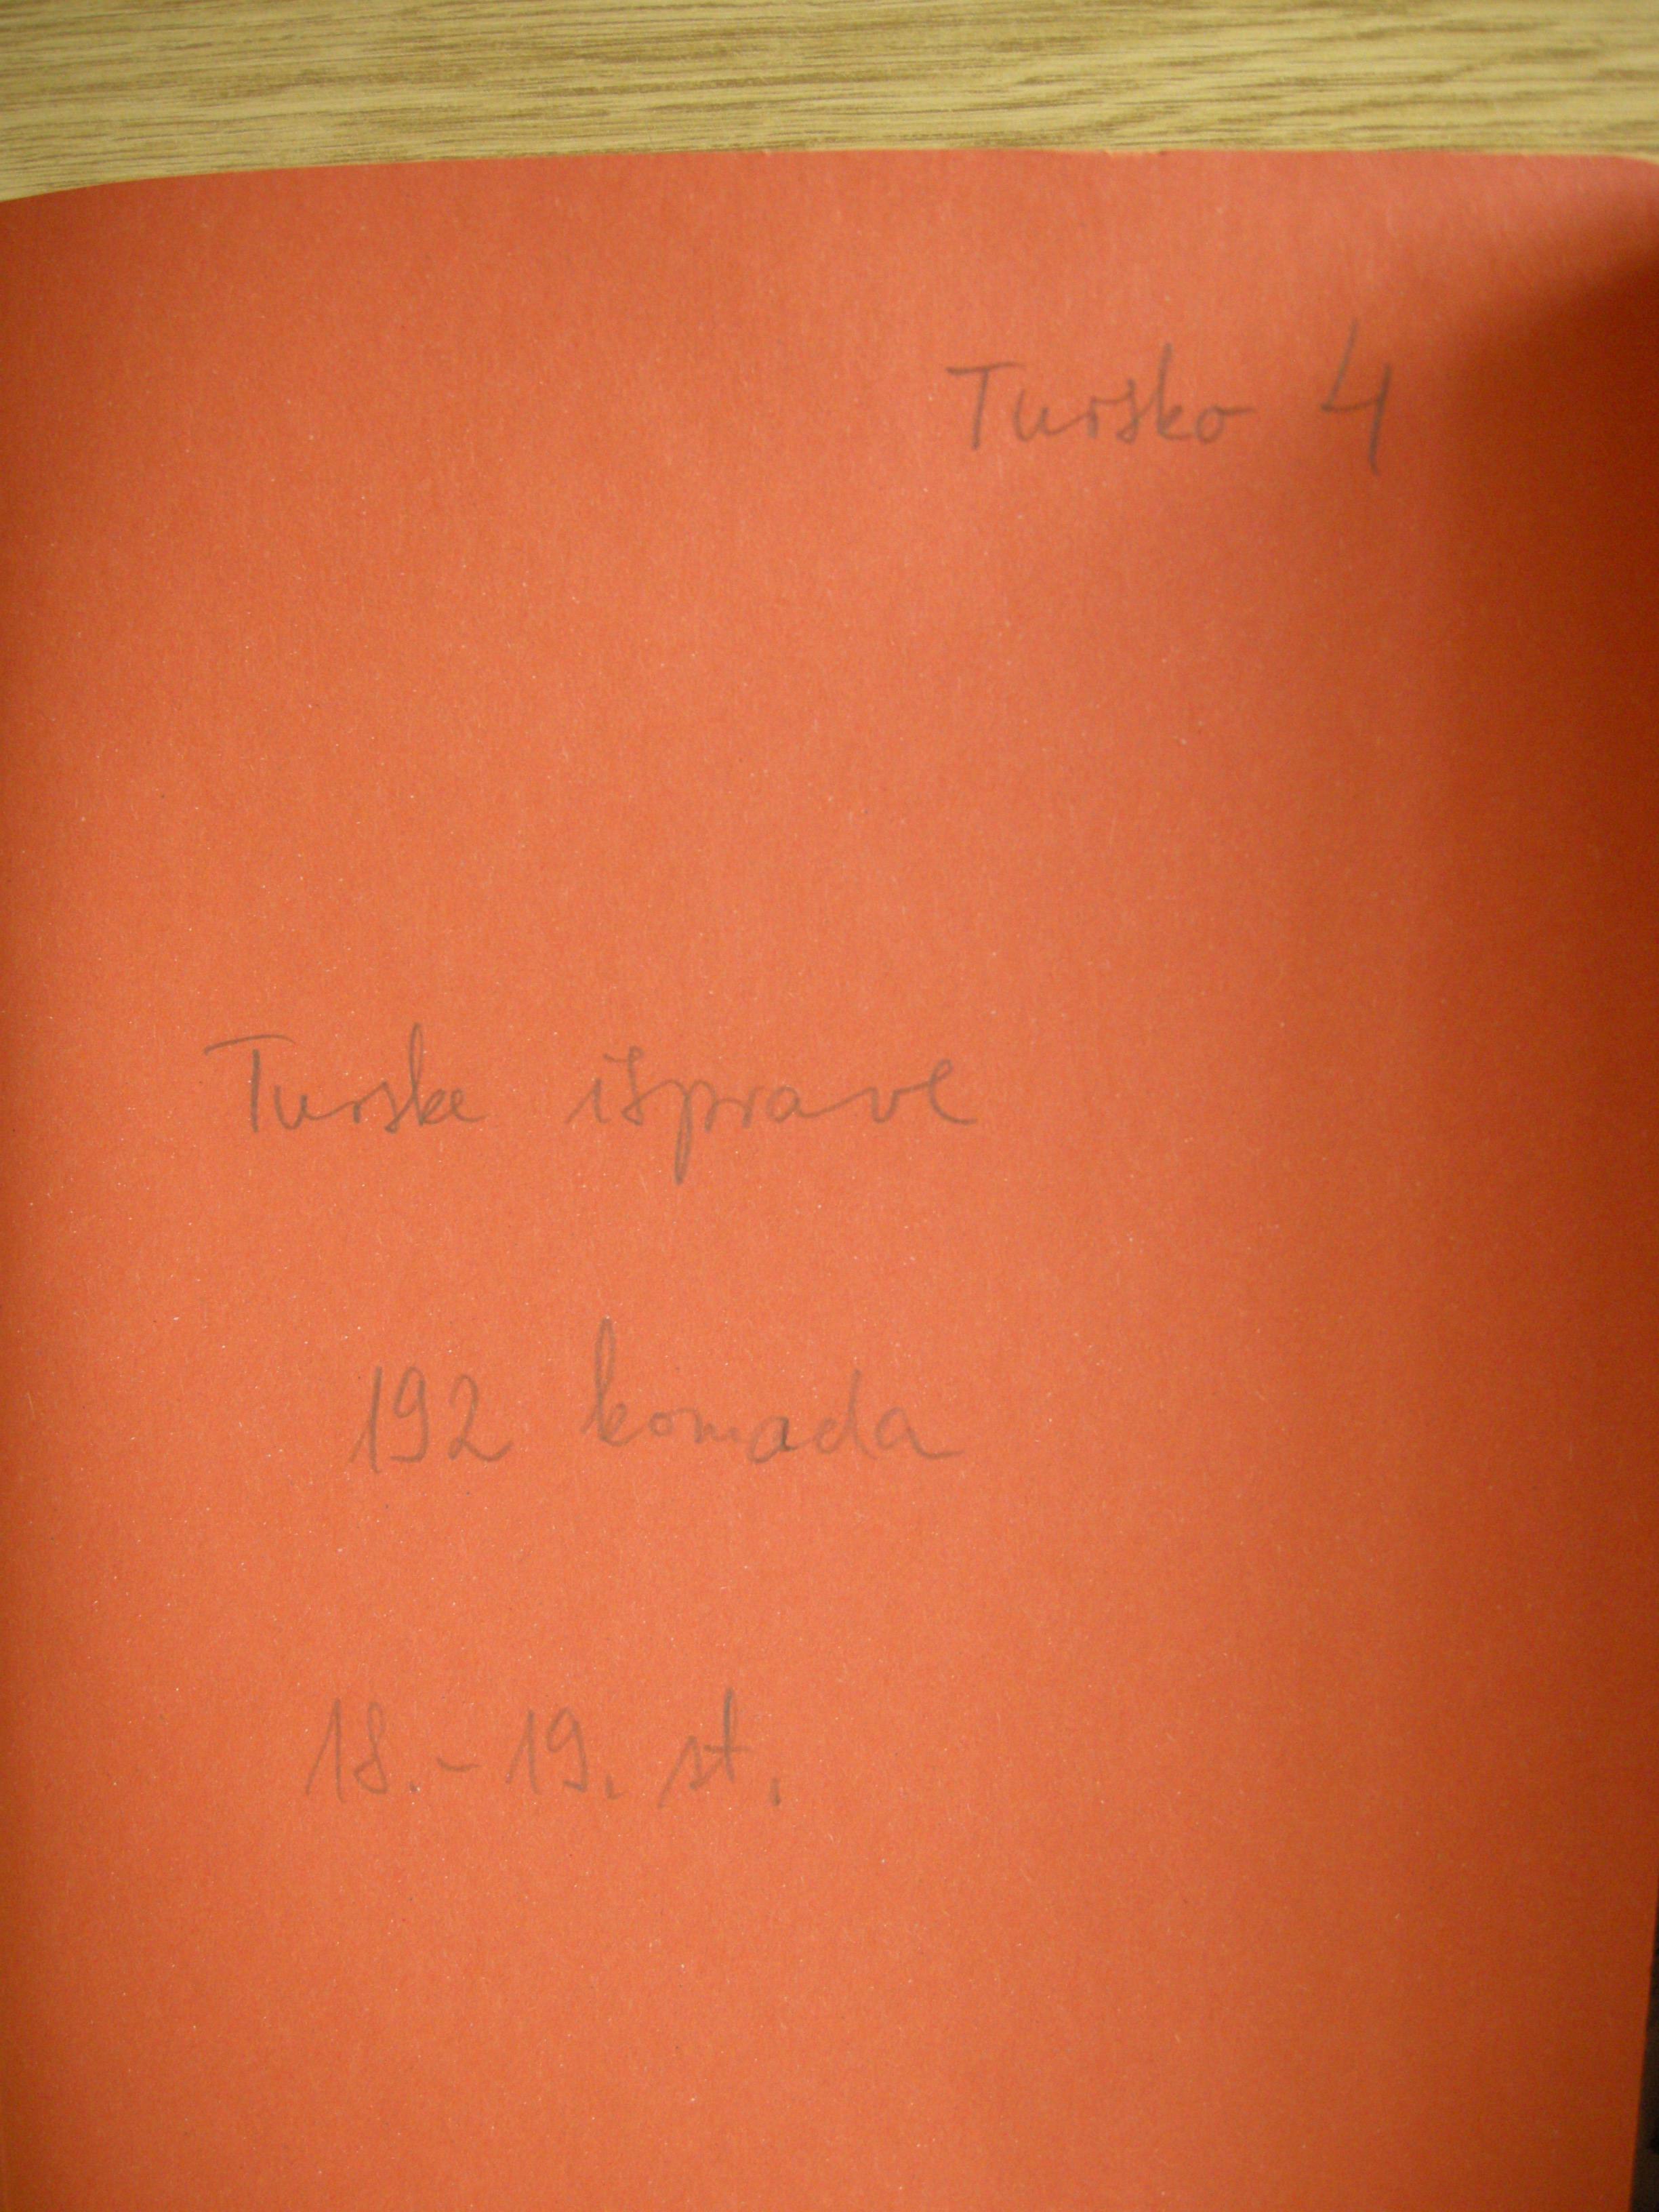 Tursko 4
Turske isprave
192 komada
18.-19. st.